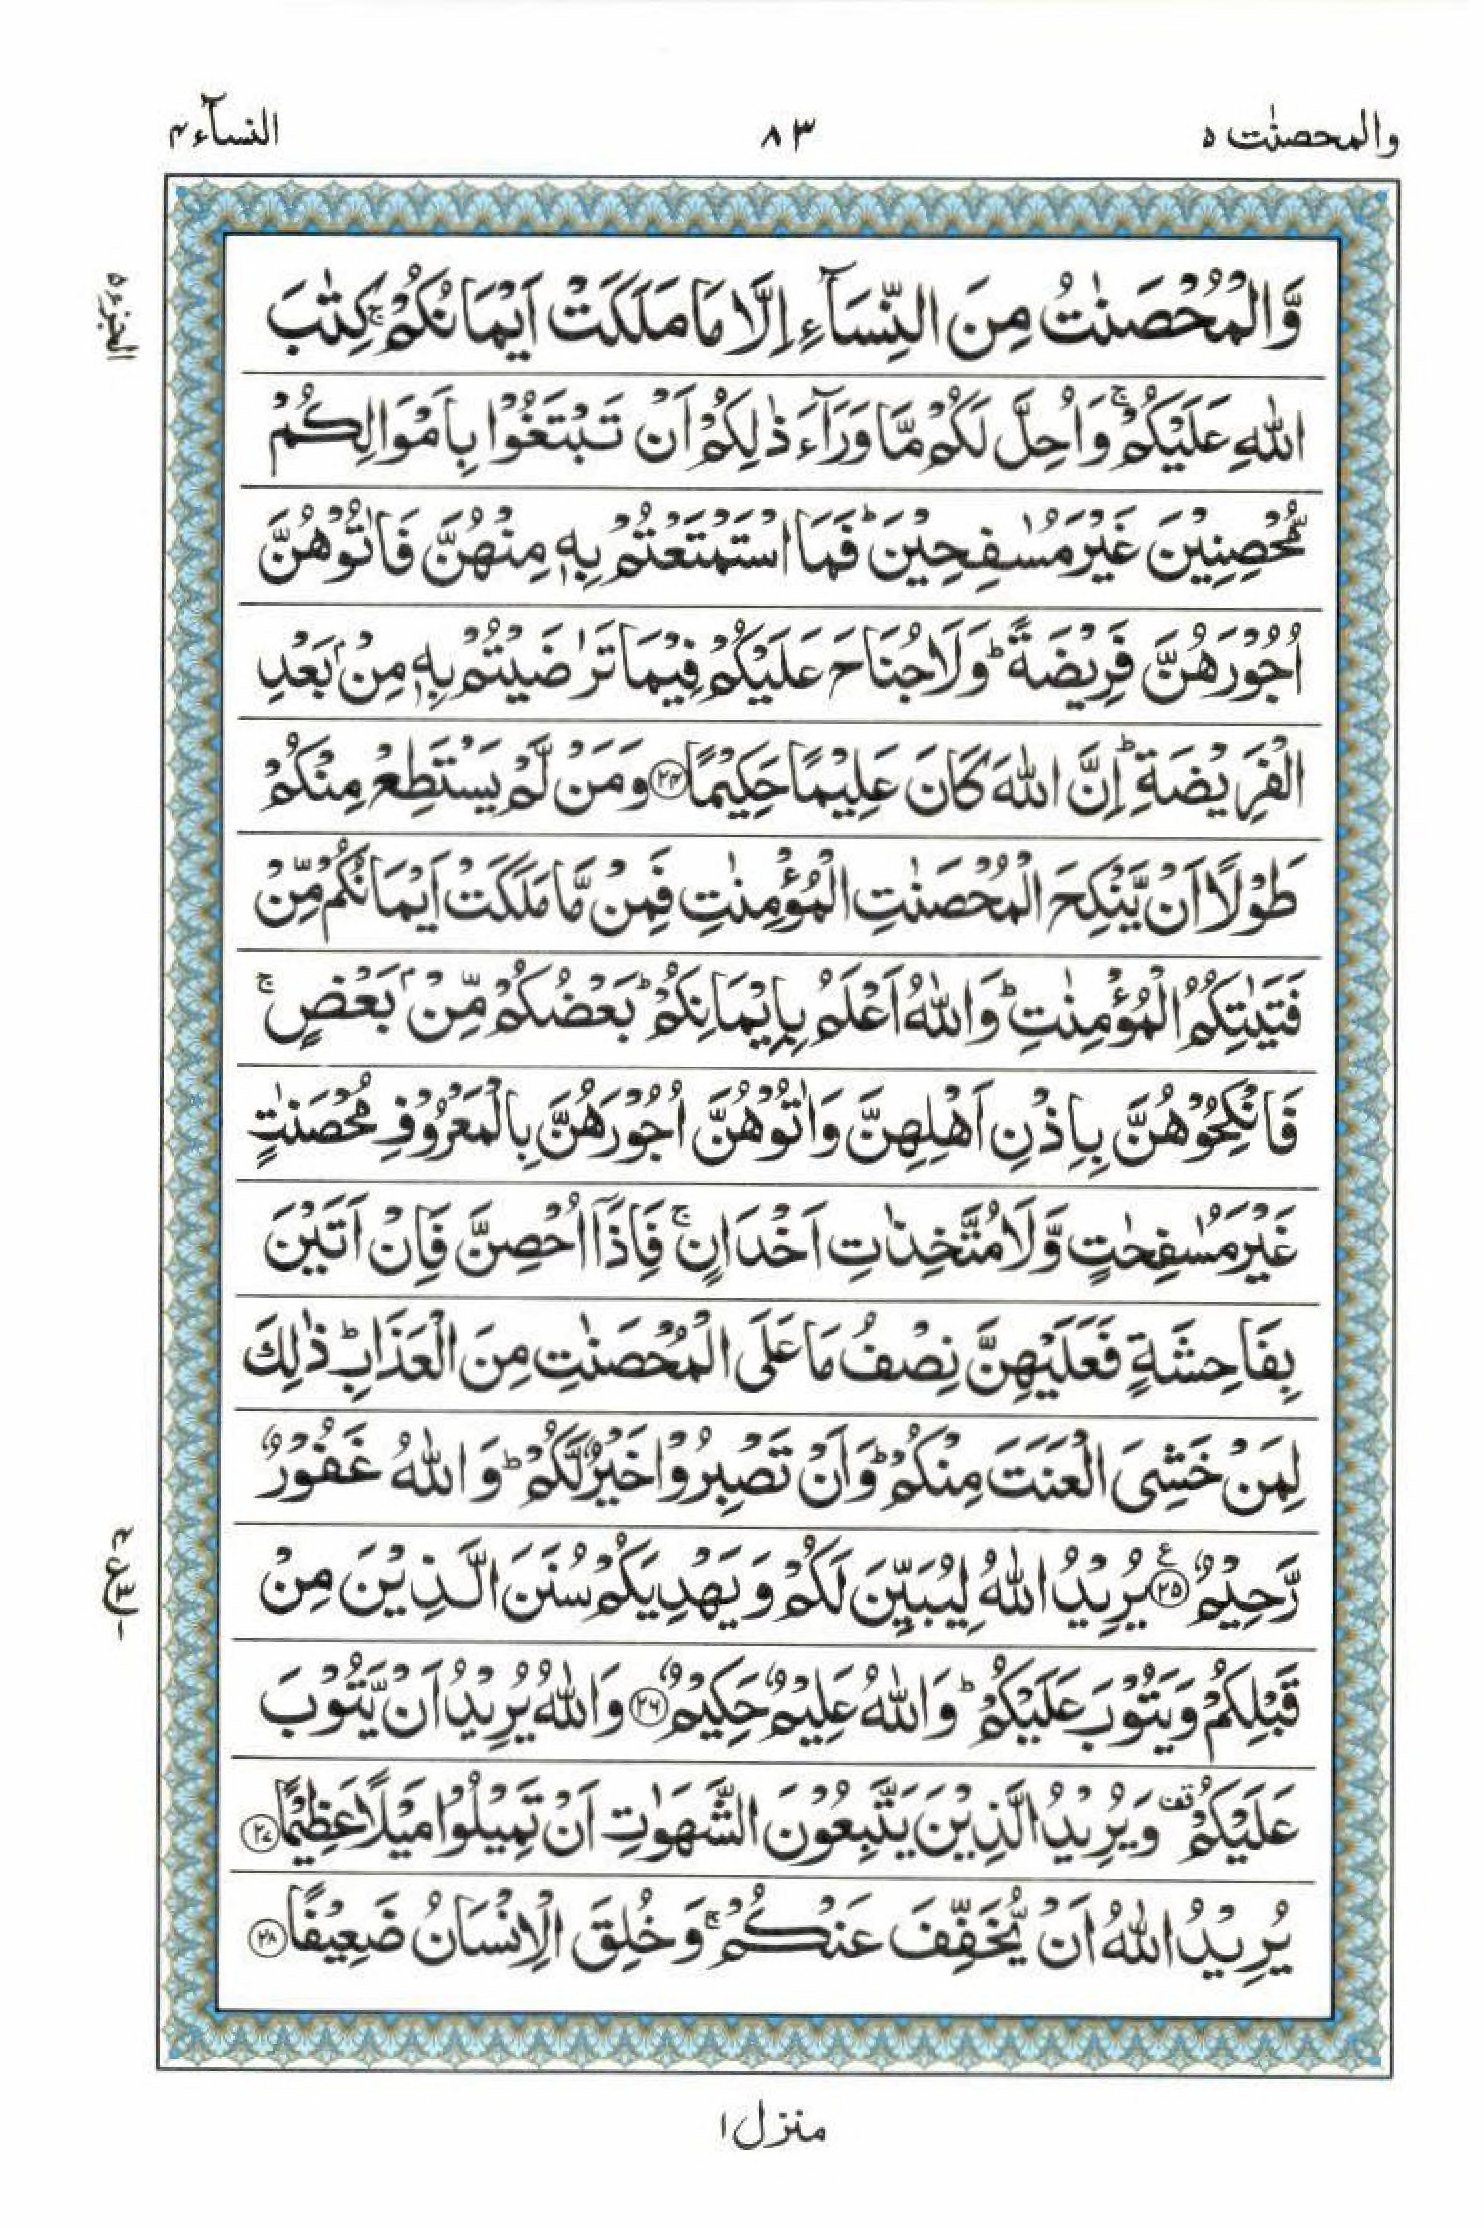 والمحصنٰت ٥
٨٣
النسآء ٤
وَّالۡمُحۡصَنٰتُ مِنَ النِّسَآءِ اِلَّا مَا مَلَكَتۡ اَيۡمَانُكُمۡ​ۚ كِتٰبَ
الجزء ٥
اللّٰهِ عَلَيۡكُمۡ​ۚ وَاُحِلَّ لَـكُمۡ مَّا وَرَآءَ ذٰ لِكُمۡ اَنۡ تَبۡتَغُوۡا بِاَمۡوَالِكُمۡ
مُّحۡصِنِيۡنَ غَيۡرَ مُسٰفِحِيۡنَ​ ؕ فَمَا اسۡتَمۡتَعۡتُمۡ بِهٖ مِنۡهُنَّ فَاٰ تُوۡهُنَّ
اُجُوۡرَهُنَّ فَرِيۡضَةً​ ؕ وَلَا جُنَاحَ عَلَيۡكُمۡ فِيۡمَا تَرٰضَيۡـتُمۡ بِهٖ مِنۡۢ بَعۡدِ
الۡـفَرِيۡضَةِ​ ؕ اِنَّ اللّٰهَ كَانَ عَلِيۡمًا حَكِيۡمًا‏ ﴿۲۴﴾ وَمَنۡ لَّمۡ يَسۡتَطِعۡ مِنۡكُمۡ
طَوۡلًا اَنۡ يَّنۡكِحَ الۡمُحۡصَنٰتِ الۡمُؤۡمِنٰتِ فَمِنۡ مَّا مَلَـكَتۡ اَيۡمَانُكُمۡ مِّنۡ
فَتَيٰـتِكُمُ الۡمُؤۡمِنٰتِ​ ؕ وَاللّٰهُ اَعۡلَمُ بِاِيۡمَانِكُمۡ​ ؕ بَعۡضُكُمۡ مِّنۡۢ بَعۡضٍ​ ۚ
فَانْكِحُوۡهُنَّ بِاِذۡنِ اَهۡلِهِنَّ وَاٰ تُوۡهُنَّ اُجُوۡرَهُنَّ بِالۡمَعۡرُوۡفِ مُحۡصَنٰتٍ
غَيۡرَ مُسٰفِحٰتٍ وَّلَا مُتَّخِذٰتِ اَخۡدَانٍ​ ۚ فَاِذَاۤ اُحۡصِنَّ فَاِنۡ اَ تَيۡنَ
بِفَاحِشَةٍ فَعَلَيۡهِنَّ نِصۡفُ مَا عَلَى الۡمُحۡصَنٰتِ مِنَ الۡعَذَابِ​ ؕ ذٰ لِكَ
لِمَنۡ خَشِىَ الۡعَنَتَ مِنۡكُمۡ​ ؕ وَاَنۡ تَصۡبِرُوۡا خَيۡرٌ لَّكُمۡ​ ؕ وَاللّٰهُ غَفُوۡرٌ
رَّحِيۡمٌ‏ ﴿۲۵﴾ ع يُرِيۡدُ اللّٰهُ لِيُبَيِّنَ لَـكُمۡ وَيَهۡدِيَكُمۡ سُنَنَ الَّذِيۡنَ مِنۡ
قَبۡلِكُمۡ وَيَتُوۡبَ عَلَيۡكُمۡ​ ؕ وَاللّٰهُ عَلِيۡمٌ حَكِيۡمٌ‏ ﴿۲۶﴾ وَاللّٰهُ يُرِيۡدُ اَنۡ يَّتُوۡبَ
عَلَيۡكُمۡ قف وَيُرِيۡدُ الَّذِيۡنَ يَتَّبِعُوۡنَ الشَّهَوٰتِ اَنۡ تَمِيۡلُوۡا مَيۡلًا عَظِيۡمًا‏ ﴿۲۷﴾
يُرِيۡدُ اللّٰهُ اَنۡ يُّخَفِّفَ عَنۡكُمۡ​ۚ وَخُلِقَ الۡاِنۡسَانُ ضَعِيۡفًا‏ ﴿۲۸﴾
منزل ١